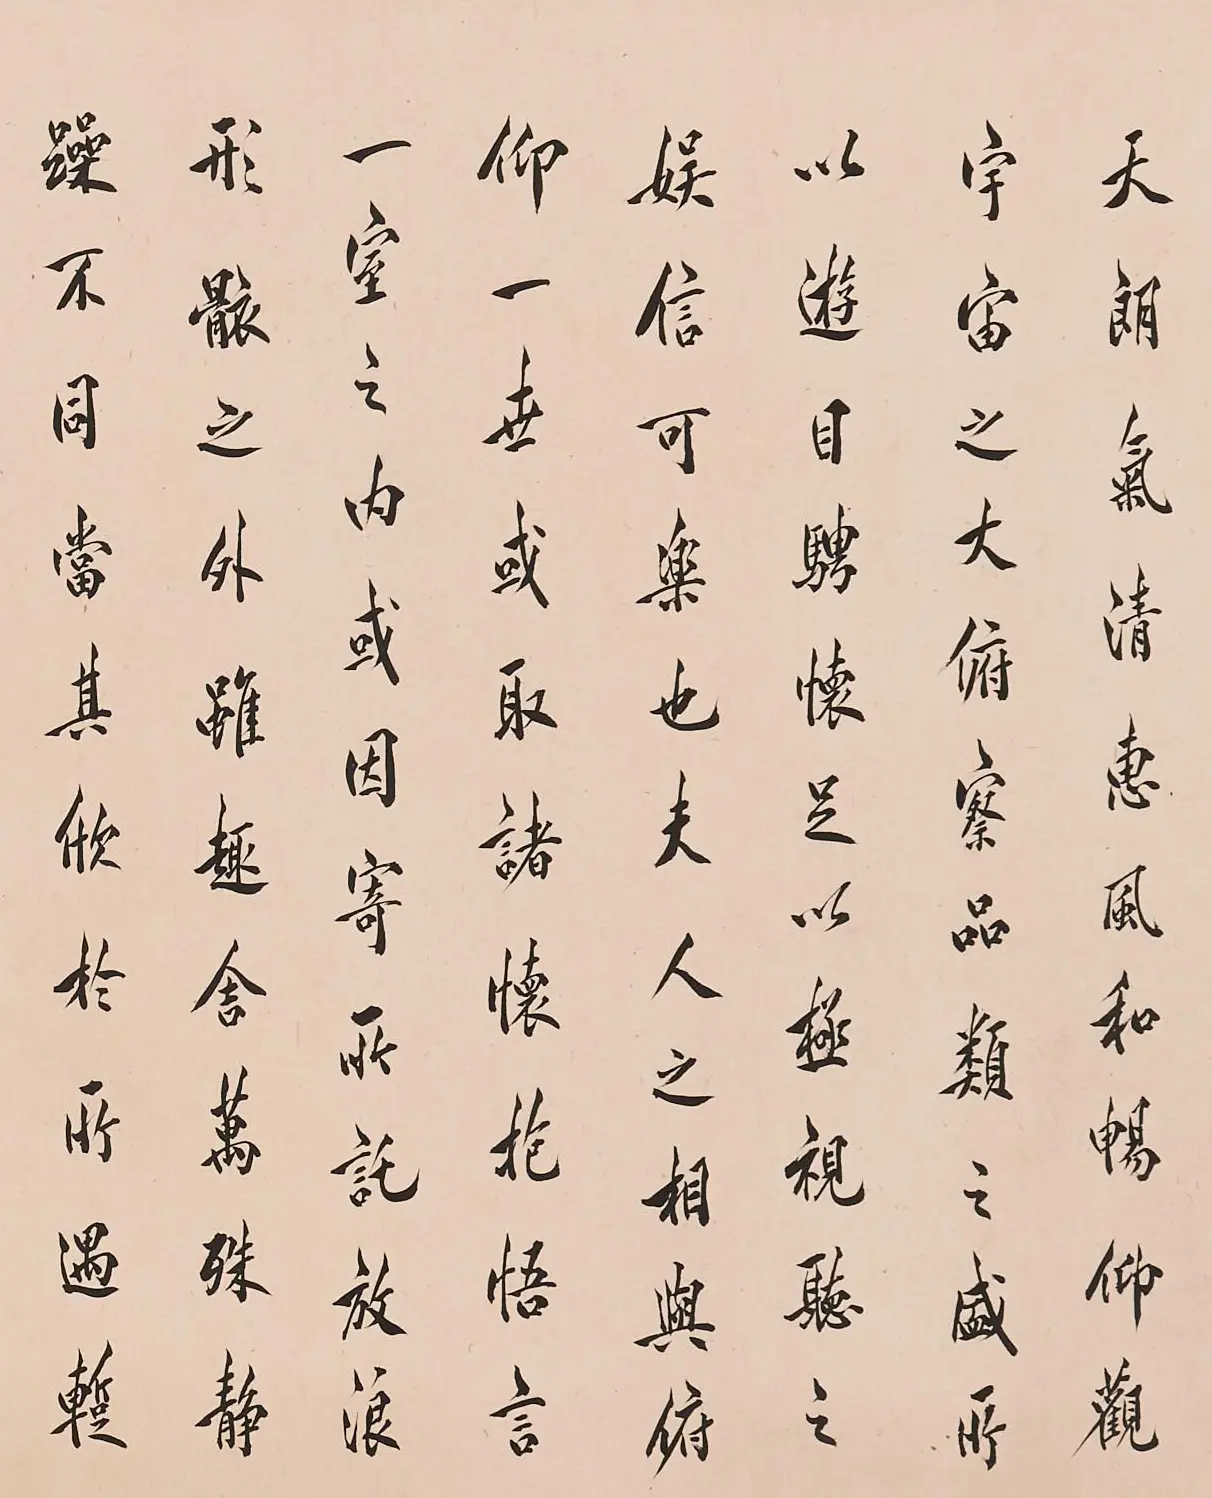 天朗氣清惠風和暢仰觀
宇宙之大俯察品類之盛所
以遊目騁懷足以極視聽之
娛信可樂也夫人之相與俯
仰一世或取諸懷抱悟言
一室之內或因寄所託放浪
形骸之外雖趣舍萬殊靜
躁不同當其欣於所遇蹔